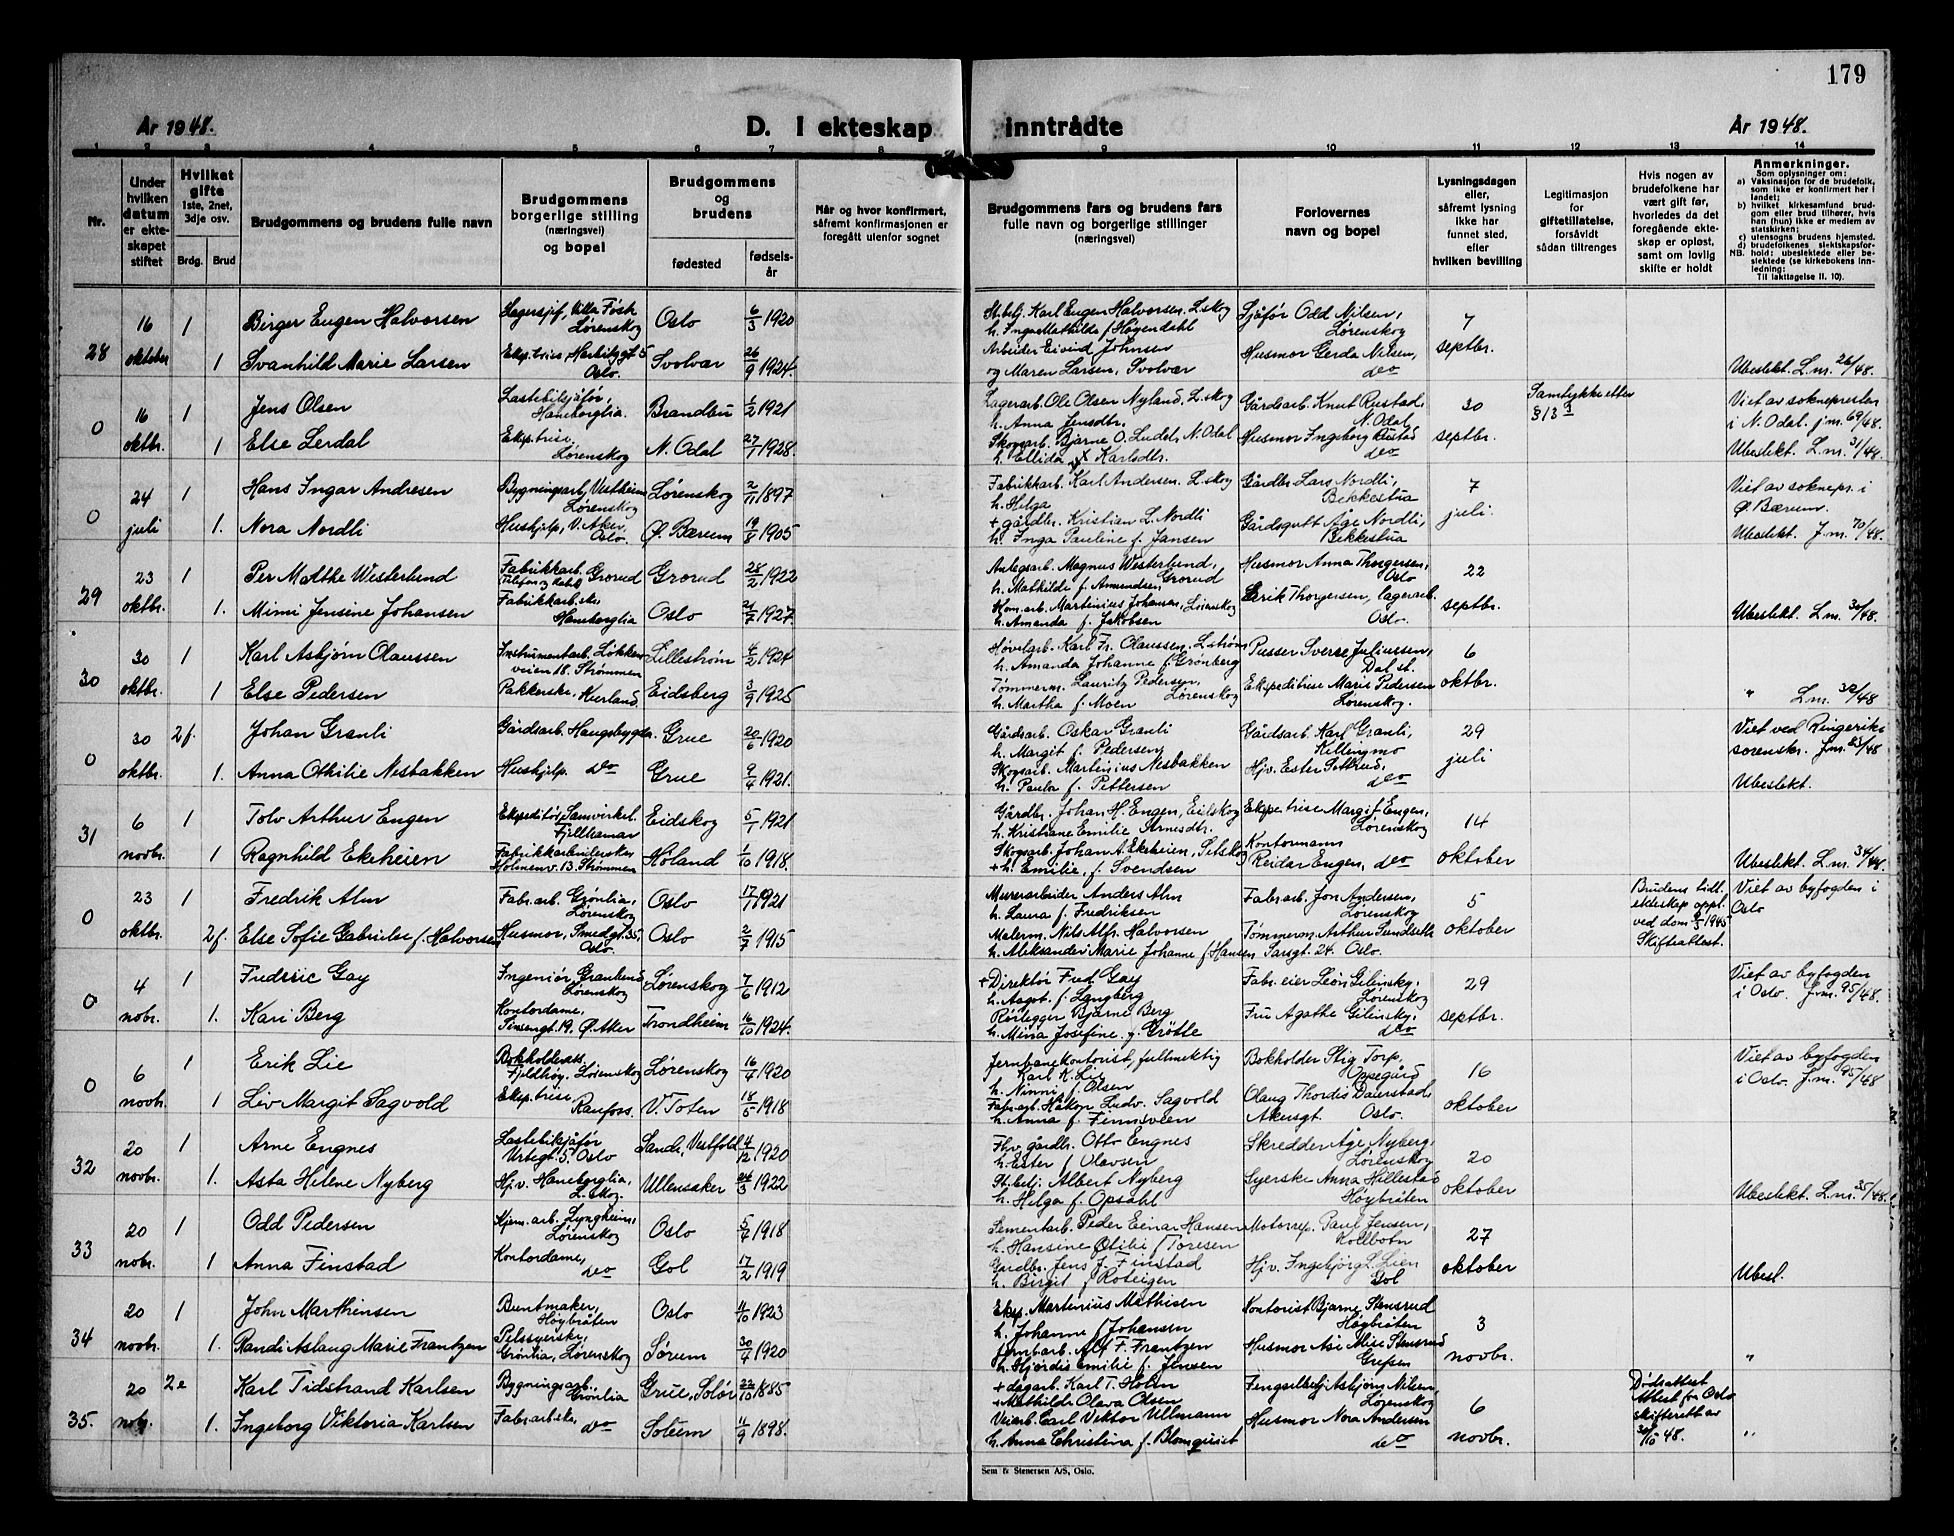 179
År 1948.
D. I ekteskap inntrådte
År 1948.
1 2 3 4 5 6 7 8 9 10 11 12 13 14
Nr.
Under hvilken datum er ekteskapet stiftet
Hvilket gifte 1ste, 2net, 3dje osv.
Brdg. Brud
Brudgommens og brudens fulle navn
Brudgommens borgerlige stilling (næringsvei) og bopel
Brudgommens og brudens
fødested
fødselsår
Når og hvor konfirmert, såfremt konfirmasjonen er foregått utenfor sognet
Brudgommens fars og brudens fars fulle navn og borgerlige stillinger (næringsvei)
Forlovernes navn og bopel
Lysningsdagen eller, såfremt lysning ikke har funnet sted, efter hvilken bevilling
Legitimasjon for giftetillatelse, forsåvidt sådan tiltrenges
Hvis nogen av brudefolkene har vært gift før, hvorledes da det foregående ekteskap er opløst, samt om lovlig skifte er holdt
Anmerkninger.
Som oplysninger om:
a) Vaksinasjon for de brudefolk, som ikke er konfirmert her i landet;
b) hvilket kirkesamfund brudgom eller brud tilhører, hvis han (hun) ikke er medlem av statskirken;
c) utensogns brudens hjemsted.
d) brudefolkenes slektskapsforhold: ubeslektede eller beslektede (se kirkebokens innledning:
NB. Til iakttagelse II. 10).
28
16 oktober 1 Birger Eugen Halvorsen Lagersjef, Villa Fosk Lørenskog Oslo 6/3 1920
St.betj. Karl Eugen Halvorsen. L.skog h. Inga Mathilde f. Høgendahl Sjåfør Odd Nilsen, Lørenskog 7 septbr.
1 Svanhild Marie Larsen Oslo. Svolvær 26/9 1924.
Arbeider Eivind Johnsen og Maren Larsen, Svolvær Husmor Gerda Nilsen, do Ubeslekt. L.m. 26/48.
0
16 oktbr. 1 Jens Olsen Lastebilsjåfør, Haneborglia. Brandbu 1/2 1921
Lagerarb. Ole Olsen Nyland, L.skog h. Anna Jensdtr. Gårdsarb. Knut Rustad, N. Odal 30 septbr. Samtykke etter § 13 Viet av sognepresten i N. Odal. J.m. 69/48.
1 Else Lerdal Eksp.trise, Lørenskog N. Odal 27/1 1928.
Skogsarb. Bjarne O. N. Odal h. Ellida Karlsdtr. Husmor Ingeborg Rustad do Ubeslekt. L.m. 31/48.
0
24 juli 1 Hans Ingar Andresen Bygningsarb, Vestheim Lørenskog Lørenskog 2/11 1897
Fabrikkarb. Karl Andersen. L.skog h. Helga Gårdbr. Lars Nordli, Bekkestua 7 juli. Viet av soknepr. i Ø. Bærum.
1. Nora Nordli Hushjelp, V. Aker, Oslo. Ø. Bærum 19/8 1905
+ gårdbr. Kristian L. Nordli h. Inga Pauline f. Jansen Gårdsgutt Åge Nordli, Bekkestua Ubeslekt. J.m. 70/48.
29
23 oktbr. 1 Per Malthe Westerlund Fabrikkarb. Grorud Grorud 28/2 1922
Anlegsarb. Magnus Westerlund, Grorud h. Mathilde f. Amundsen, Husmor Anna Thorgersen, Oslo 22 septbr.
1. Mimi Jensine Johansen Fabrikkarb.ske, Haneborglia Oslo 21/7 1927
Kom.arb. Martinius Johansen, Lørenskog h. Amanda f. Jakobsen Erik Thorgersen, lagerarb. Oslo. Ubeslekt. L.m. 30/48.
30
30 oktbr. 1 Karl Asbjørn Olaussen Instrumentarb. Løkkeveien 18. Strømmen Lillestrøm 4/2 1924
Høvelarb. Karl Fr. Olaussen. L.strøm h. Amanda Johanne f. Grønberg Pusser Sverre Juliussen, Dal st. 6 oktbr.
1 Else Pedersen Pakkerske, Kurland. Eidsberg 3/9 1925
Tømmerm. Lauritz Pedersen, Lørenskog h. Martha f. Moen Ekspeditrise Marie Pedersen Lørenskog. " L.m. 32/48
0
30 oktbr. 2f. Johan Granli Gårdsarb. Haugsbygda. Grue 20/6 1920
Gårdsarb. Oskar Granli h. Margit f. Pedersen Gårdsarb. Karl Granli, Killingmo 29 juli Viet ved Ringerike sorenskr. J.m. 83/48
1. Anna Othilie Nesbakken Hushjelp. do Grue 9/4 1921.
Skogsarb. Martinius Nesbakken h. Paula f. Pettersen Hjv. Ester do Ubeslekt.
31
6 novbr. 1 Tolv Arthur Engen Ekspeditør, Samvirkel. Fjellhamar Eidskog 5/1 1921
Gårdbr. Johan H. Engen, Eidskog h. Kristiane Emilie Arnesdtr. Ekspeditrise Margit Engen, Lørenskog 14 oktober
1 Ragnhild Ekeheien Fabrikkarbeiderske Holmenv. 13. Strømmen Høland 1/10 1918.
Skogsarb. Johan A. Ekeheien, Setskog + h. Emilie, f. Svendsen Kontormann Reidar Engen, do Ubeslekt. L.m. 34/48.
0
23 oktbr. 1 Fredrik Alm Fabr. arb. Grønlia, Lørenskog Oslo 17/1 1921
Murerarbeider Anders Alm h. Laura f. Fredriksen Fabr.arb. Jon Andersen, Lørenskog 5 oktober Brudens tidl. ekteskap oppl. ved dom 1945 Skifteattest. Viet av byfogden i Oslo
2f. Else Sofie Gabrielse f. Halvorsen Husmor, Smedgt. 35, Oslo. Oslo 2/7 1915
Malerm. Nils Alfr. Halvorsen h. Aleksandra Marie Johanne f. Hansen Tømmerm. Arthur Sundseth Sarsgt. 24. Oslo.
0
4 novbr. 1 Fredric Gay Ingeniør, Granlund Lørenskog Lørenskog 7/6 1912
+ Direktør Fred Gay h. Aagot f. Langberg Fabr. eier Leon Gilinsky, Lørenskog 29 septbr. Viet av byfogden i Oslo. J.m. 95/48.
1. Kari Berg Kontordame, Sinsengt. 19. Ø. Aker Trondheim 16/10 1924.
Rørlegger Bjarne Berg h. Mina Josefine f. Grøtte Fru Agathe Gilinsky, do
0
6 novbr. 1 Erik Lie Bokholderass. Fjeldhøy. Lørenskog Lørenskog 16/4 1920
Jernbanekontorist, fullmektig Karl K. Lie h. Ninni f. Olsen Bokholder Stig Torp, Oppegård 16 oktober Viet av byfogden i Oslo. J.m. 95/48
1 Liv Margit Sagvold Eksp.trise, Raufoss. V. Toten 18/5 1918
Fabr.arb. Håkon Ludv. Sagvold h. Anna f. Finnsveen Olaug Thordis Akersgt. Oslo.
32
20 novbr. 1 Arne Engnes Lastebilsjåfør Urtegt. 5. Oslo Sande, Vestfold 4/12 1920
Fhv. gårdbr. Otto Engnes h. Ester f. Olavsen Skredder Åge Nyberg, Lørenskog 20 oktober
1. Asta Helene Nyberg Hjv. Haneborglia, L.skog. Ullensaker 24/3 1922
St.betj. Albert Nyberg h. Helga f. Opsahl Syerske Anna Hillestad Høybråten Ubeslekt. L.m. 35/48.
33
20 novbr. 1 Odd Pedersen Kjem. arb. Lyngheim, Lørenskog Oslo 5/4 1918
Sementarb. Peder Einar Hansen h. Hansine Otilie f. Toresen Motorrep. Paul Jensen, Kolbotn 27 oktober
1 Anna Finstad Kontordame, do Gol 17/2 1919
Gardbr. Jens J. Finstad h. Birgit f. Roteigen Hjv. Ingebjørg L. Lien Gol Ubesl.
34
20 novbr. 1 John Marthinsen Buntmaker, Høybråten Oslo 4/10 1923
Eksp. Martinius Mathisen h. Johanne f. Johansen Kontorist Bjarne Stensrud Høybråten 3 novbr.
1. Randi Aslaug Marie Frantzen Pelssyerske, Grønlia, Lørenskog Sørum 30/4 1920
Jernb.arb. Alf F. Frantzen h. Hjørdis Emilie f. Jensen Husmor Stensrud Grefsen "
35.
20 novbr. 2e Karl Tidstrand Karlsen Bygningsarb. Grønlia Grue, Solør 22/10 1885
+ dagarb. Karl T. Holm + Mathilde Olava Olsen Fengselbetj. Asbjørn Nilsen, Lørenskog 6 novbr. Dødsattest Attest fra Oslo skifterett av 30/10 48.
1. Ingeborg Viktoria Karlsen Fabr.arb.ske, do 11/9 1898.
Veiarb. Carl Viktor Ullmann h. Anna Christina f. Blomquist Husmor Nora Andersen do "
Sem & Stenersen A/S, Oslo.